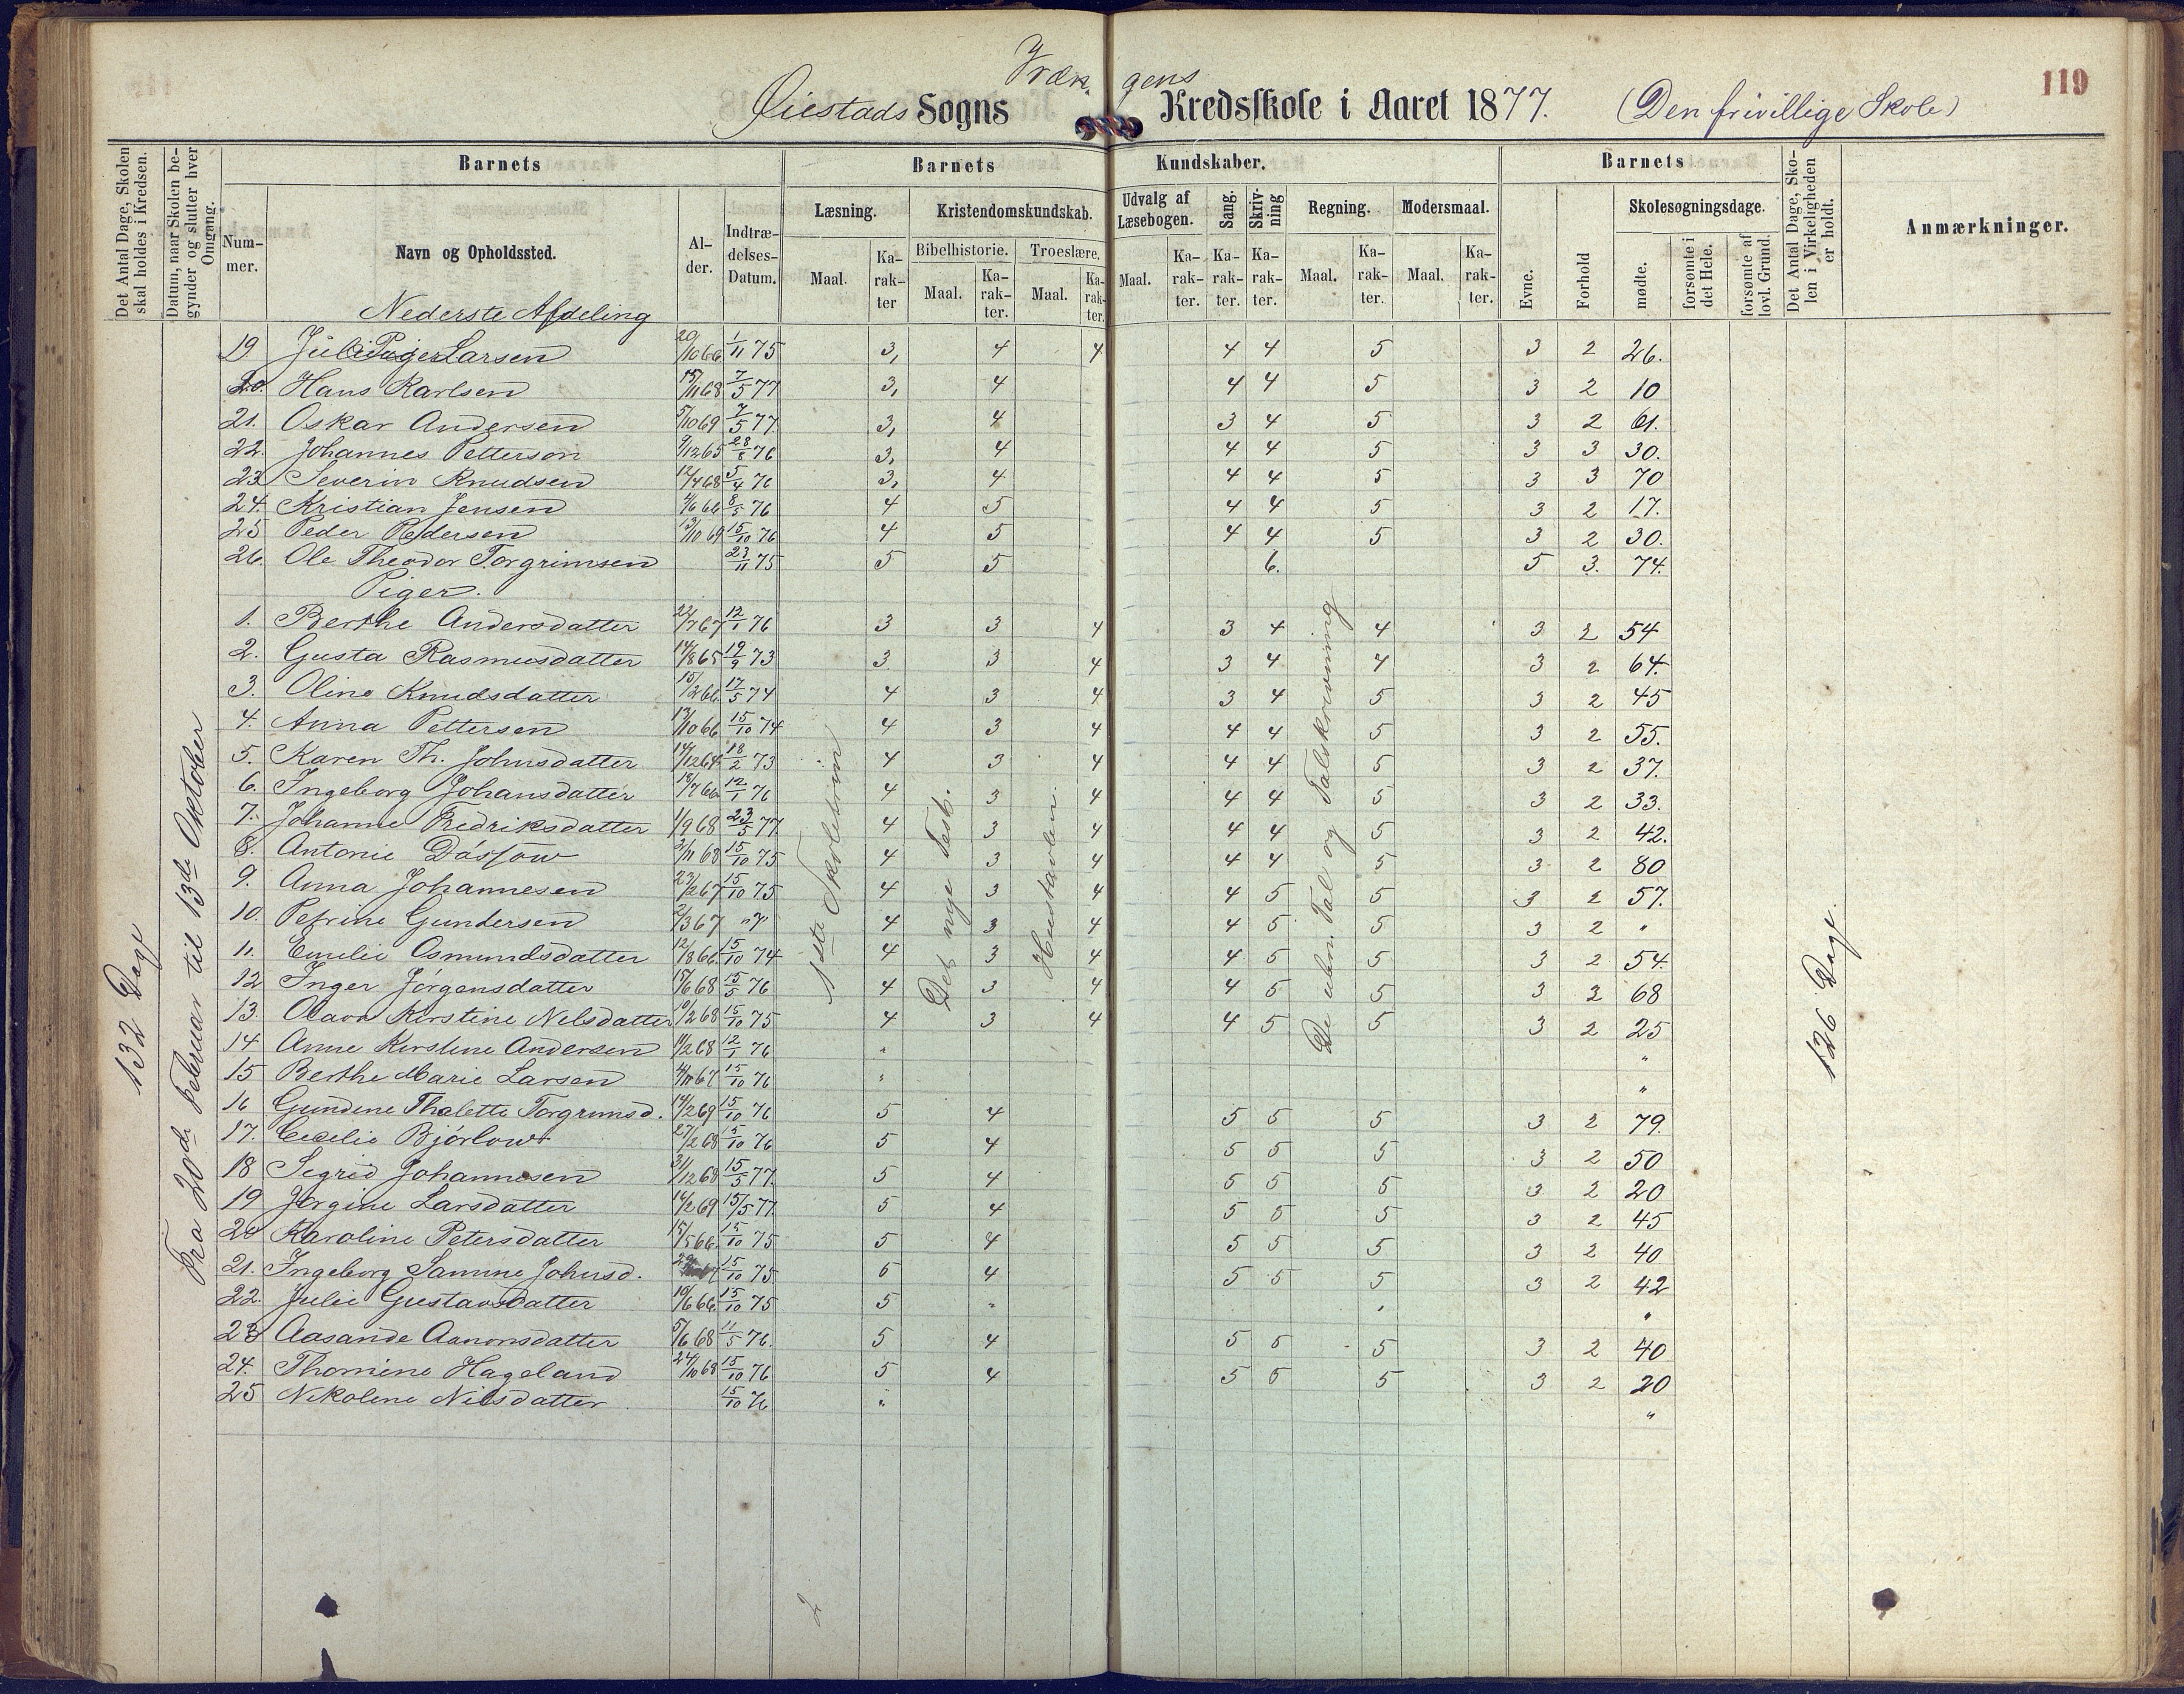 119
Øiestads Sogns Vræn gens Kredsskole i Aaret 1877. (Den frivillige Skole)
Det Antal Dage, Skolen skal holdes i Kredsen.
Datum, naar Skolen begynder og slutter hver Omgang.
Barnets
Nummer.
Navn og Opholdssted.
Alder.
Indtrædelses-Datum.
Barnets Kundskaber.
Læsning.
Maal.
Karakter
Kristendomskundskab.
Bibelhistorie.
Maal.
Karakter.
Troeslære.
Maal.
Karakter.
Udvalg af Læsebogen.
Maal.
Karakter.
Sang.
Karakter.
Skrivning
Karakter.
Regning.
Maal.
Karakter.
Modersmaal.
Maal.
Karakter.
Barnets
Evne.
Forhold
Skolesøgningsdage.
mødte.
forsømte i det Hele.
forsømte af lovl. Grund.
Det Antal Dage, Skolen i Virkeligheden er holdt.
Anmærkninger.
132 Dage
Fra 20de Februar til 13de Oktober
1ste Skoletrin
Det nye Test.
Hustavlen.
De uben. Tal og Talskrivning
126 Dage.
Nederste Afdeling
19 Larsen 20/10 66 1/11 75 3, 4 4 4 4 5 3 2 26.
20. Hans Karlsen 15/11 68 7/5 77 3, 4 4 4 5 3 2 10
21. Oskar Andersen 5/10 69 7/5 77. 3, 4 3 4 5 3 2 61.
22. Johannes Petterson 9/12 65 28/8 76 3, 4 4 4 5 3 3 30.
23 Severin Knudsen 12/4 68 5/4 76 3, 4 4 4 5 3 3 70
24. Kristian Jensen 4/6 66 8/5 76 4 5 4 4 5 3 2 17.
25 Peder Pedersen 13/10 69 15/10 76 4 5 4 4 5 3 2 30.
26. Ole Theodor Torgrimsen 23/11 75 5 5 6. 5 3. 74.
Piger.
1. Berthe Andersdatter 22/7 67 12/1 76 3 3 4 3 4 4 3 2 54
2. Gusta Rasmusdatter 14/8 65 19/9 73 3 3 4 3 4 4 3 2 64.
3. Oline Knudsdatter 15/12 66. 17/5 74 4 3 4 3 4 5 3 2 45
4. Anna Pettersen 13/10 66 15/10 74 4 3 4 4 4 5 3 2 55.
5. Karen Th. Johnsdatter 14/12 64 18/2 73 4 3 4 4 4 5 3 2 37.
6. Ingeborg Johansdatter 18/7 66 12/1 76 4 3 4 4 4 5 3 2 33.
7. Johanne Fredriksdatter 1/9 68 23/5 77. 4 3 4 4 4 5 3 2 42.
8. Antonie Døssow 3/11 68 15/10 75 4 3 4 4 4 5 3 2 80
9. Anna Johannesen 23/2 67 15/10 75 4 3 4 4 5 5 3 2 57.
10. Petrine Gundersen 2/3 67 " 4 3 4 4 5 5 3 2 "
11. Emilie Osmundsdatter 12/8 66. 15/10 74 4 3 4 4 5 5 3 2 54.
12 Inger Jörgensdatter 15/6 68 15/5 76 4 3 4 4 5 5 3 2 68
13. Olava Kirstine Nilsdatter 10/2 68 15/10 75 4 3 4 4 5 5 3 2 25
14 Anne Kirstine Andersen 11/2 68 12/1 76 " "
15 Berthe Marie Larsen 4/11 67 15/10 76 " "
16 Gundine Thalette Torgrimsd. 14/2 69 15/10 76 5 4 5 5 5 3 2 79.
17. Cecelie Bjørlow 27/2 68 15/10 76 5 4 5 5 5 3 2 50
18 Segrid Johannesen 31/12 68 15/5 77. 5 4 5 5 5 3 2 20
19 Jørgine Larsdatter 14/2 69 15/5 77. 5 4 5 5 5 3 2 45
20 Karoline Petersdatter 15/5 66. 15/10 75 5 4 5 5 5 3 2 40
21. Ingeborg Samine Johnsd. 15/10 75 5 4 5 5 5 3 2 42
22. Julie Gustavsdatter 10/6 66. 15/10 75 5 " " "
23 Aasande Aanonsdatter 5/6 68 11/5 76. 5 4 5 5 5 3 2 40
24. Thomine Hageland 24/10 68 15/10 76 5 4 5 5 5 3 2 20
25 Nikoline Nilsdatter 15/10 76 " "
2